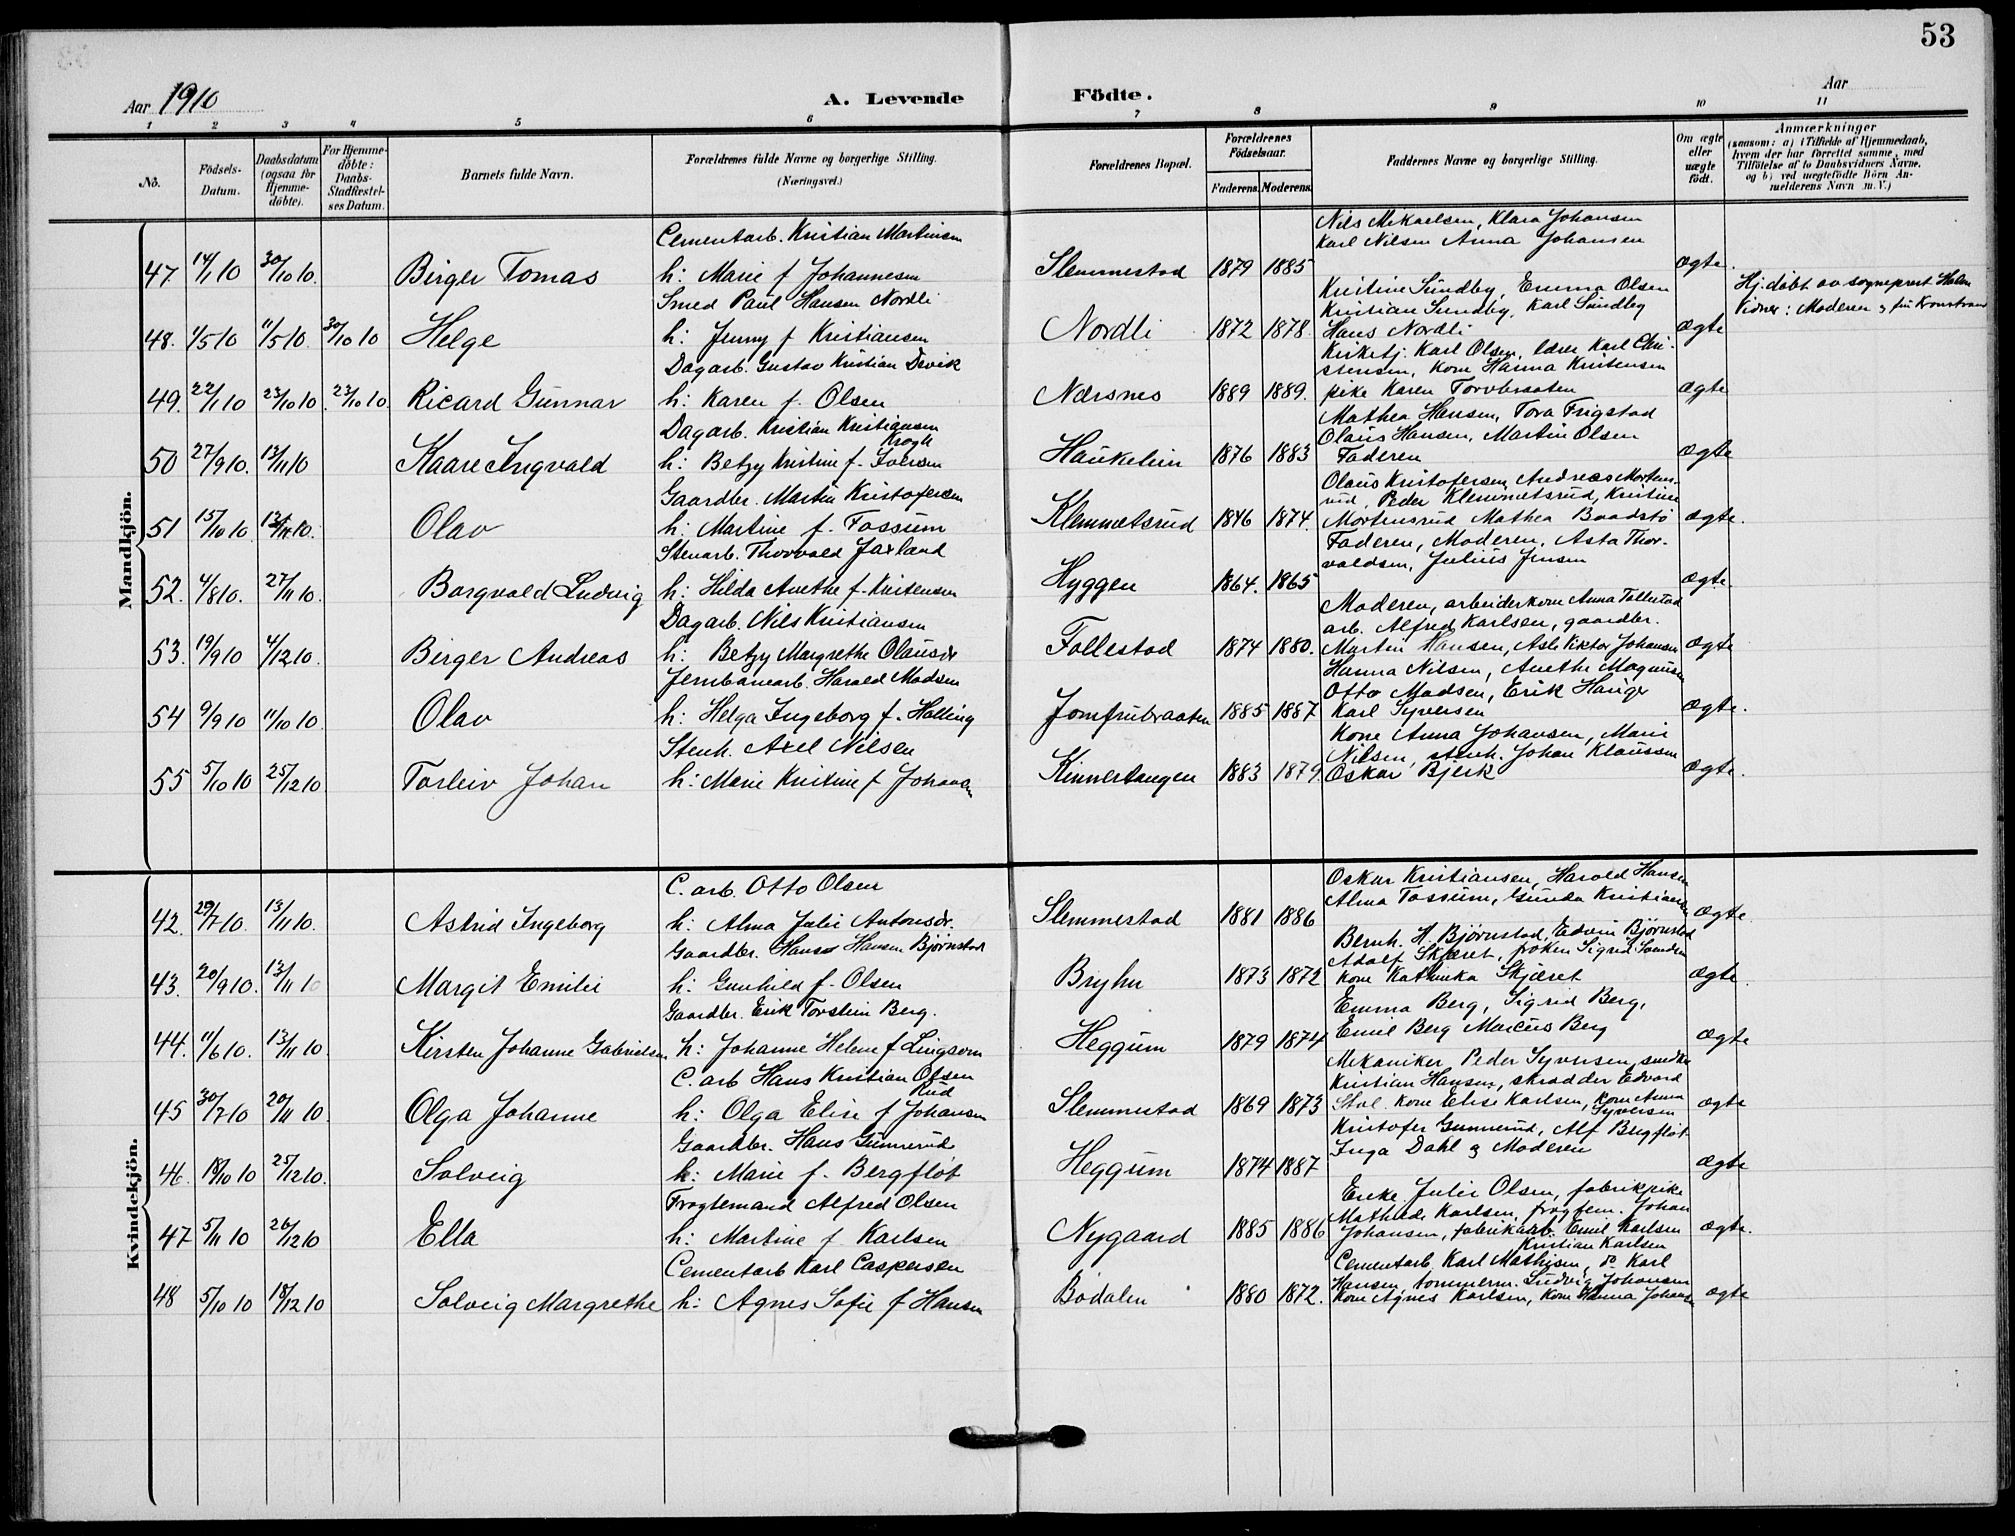 53
Aar 1910
A. Levende Födte.
Aar
1 2 3 4 5 6 7 8 9 10 11
No.
Födsels-Datum.
Daabsdatum (ogsaa for Hjemme-døbte).
For Hjemme-döbte: Daabs-Stadfæstel-ses Datum.
Barnets fulde Navn.
Forældrenes fulde Navne og borgerlige Stilling. (Næringsvei.)
Forældrenes Bopæl.
Forældrenes Födselsaar.
Faderens. Moderens.
Faddernes Navne og borgerlige Stilling.
Om ægte eller uægte födt.
Anmærkninger
(saasom: a) i Tilfælde af Hjemmedaab, hvem der har forrettet samme, med Tilföielse af to Daabsvidners Navne, og b) ved uægtefödte Börn An-melderens Navn m. V.)
Mandkjön.
Cementarb. Kristian Martinsen
Nils Mikaelsen, Klara Johansen
Karl Nilsen Anna Johansen
47. 14/1 10 30/10 10. Birger Tomas h: Marie f Johannesen Slemmestad 1879 1885 ægte.
Smed Paul Hansen Nordli
Kristine Sundby, Emma Olsen
Kristian Sundby, Karl Sundby
Hj. døbt av sogneprest Holm
Vidner: Moderen & fru
48. 1/5 10 11/5 10. 30/10 10 Helge h: Jenny f Kristiansen Nordli 1872 1878. Hans Nordli ægte
Dagarb. Gustav Kristian Devik
Kirketj. Karl Olsen, lærer Karl Chri-
stensen, kone Hanna Kristensen
49. 22/1 10 23/10 10. 23/10 10. Ricard Gunnar h: Karen f. Olsen Nærsnes 1889 1889. pike Karen Torvbraaten ægte
Dagarb. Kristian Kristiansen
Krogh
Mathea Hansen, Tora Frigstad
Olaus Hansen, Martin Olsen
50 27/9 10. 13/11 10 Kaare Ingvald h: Betzy Kristine f. Iversen Haukelien 1876 1883 Faderen ægte
Gaardbr. Martin Kristofersen
Olaus Kristofersen, Andreas Mortens-
rud, Peder Klemmetsrud, Kristine
51 15/10 10. 13/11 10. Olav h: Martine f. Fossum Klemmetsrud 1846 1874. Mortensrud Mathea Baadstø ægte.
Stenarb. Thorvald Jaxland
Faderen, Moderen, Asta Thor-
valdsen, Julius Jensen
52. 4/8 10. 27/11 10. Borgvald Ludvig h: Hilda Anethe f. Kristensen Hyggen 1864. 1865 ægte.
Dagarb. Nils Kristiansen
Moderen, arbeiderkone Anna Follestad
arb. Alfred Karlsen, gaardbr.
53. 19/9 10 4/12 10. Birger Andreas h: Betzy Margrethe Olausdr Follestad 1874 1880. Martin Hansen, Asle Viktor Johansen ægte
Jernbanearb. Harald Madsen
Hanna Nilsen, Anethe Magnusen
Otto Madsen, Erik Hauger
54 9/9 10 11/10 10 Olav h: Helga Ingeborg f. Halling Jomfrubraaten 1885 1887 Karl Syversen ægte.
Stenh. Axel Nilsen
Kone Anna Johansen, Marie
Nilsen, stenh. Johan Klaussen
55 5/10 10 25/12 10 Torleiv Johan h: Marie Kristine f Johansen Kinnertangen 1883 1879. Oskar Bjerk ægte.
Kvindekjön.
C. arb. Otto Olsen
Oskar Kristiansen, Harald Hansen
Alma Fossum, Gunda Kristiansen
42. 29/7 10. 13/11 10. Astrid Ingeborg h: Alma Julie Antonsdr. Slemmestad 1881 1886 ægte
Gaardbr. Hans Hansen Bjørnstad
Bernh. H. Bjørnstad, Edvin Bjørnstad
Adolf Skjæret, frøken Sigrid
43. 20/9 10. 13/11 10 Margit Emilie h: Gunhild f. Olsen Bryhn 1873 1872 kone Kathinka Skjæret ægte.
Gaardbr. Erik Torstein Berg.
Emma Berg, Sigrid Berg,
44. 11/6 10. 13/11 10 Kirsten Johanne Gabrielsen h: Johanne Helene f Lingsom Heggum 1879 1874 Emil Berg Marcus Berg ægte
C. arb Hans Kristian Olsen
Rud
Mekaniker Peder Syversen, snedker
Kristian Hansen, skrædder Edvard
45 30/7 10 20/11 10. Olga Johanne h: Olga Elise f Johansen Slemmestad 1869 1873 Stol. kone Elise Karlsen, kone Anna ægte
Syversen
Gaardbr. Hans Gunnerud
Kristofer Gunnerud, Alf Bergfløt
46. 18/10 10 25/12 10. Solveig h: Marie f. Bergfløt Heggum 1874 1887 Inga Dahl & Moderen ægte
Frogtemand Alfred Olsen
Enke Julie Olsen, fabrikpike
Mathilde Karlsen, frogtem. Johan
47 5/11 10 26/12 10 Ella h: Martine f Karlsen Nygaard 1885 1886 Johansen, fabrikarb. Emil Karlsen ægte.
Kristian Karlsen
Cementarb Karl Caspersen
Cementarb. Karl Mathisen, do Karl
Hansen, tømmerm. Ludvig Johansen
48 5/10 10 18/12 10 Solveig Margrethe h: Agnes Sofie f Hansen Bødalen 1880 1872. Kone Agnes Karlsen, kone Hanna Johansen ægte